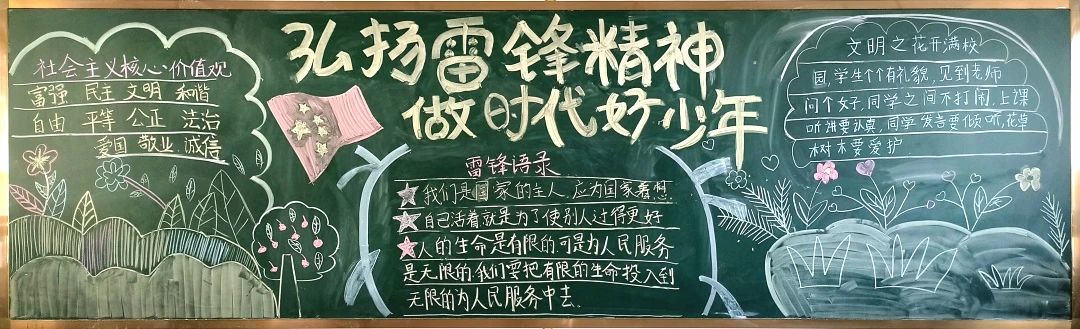 弘扬雷锋精神
做时代好少年
社会主义核心·价值观
富强 民主 文明 和谐
自由 平等 公正 法治
爱国 敬业 诚信
雷锋语录
我们是国家的主人,应为国家着想.
自己活着就是为了使别人过得更好
人的生命是有限的可是为人民服务
是无限的,我们要把有限的生命投入到
无限的为人民服务中去.
文明之花开满校
园,学生个个有礼貌,见到老师
问个好,同学之间不打闹,上课
听讲要认真,同学发言要倾听,花草
树木要爱护